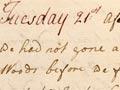 Tuesday 21st
De had not gone a
Woods before De